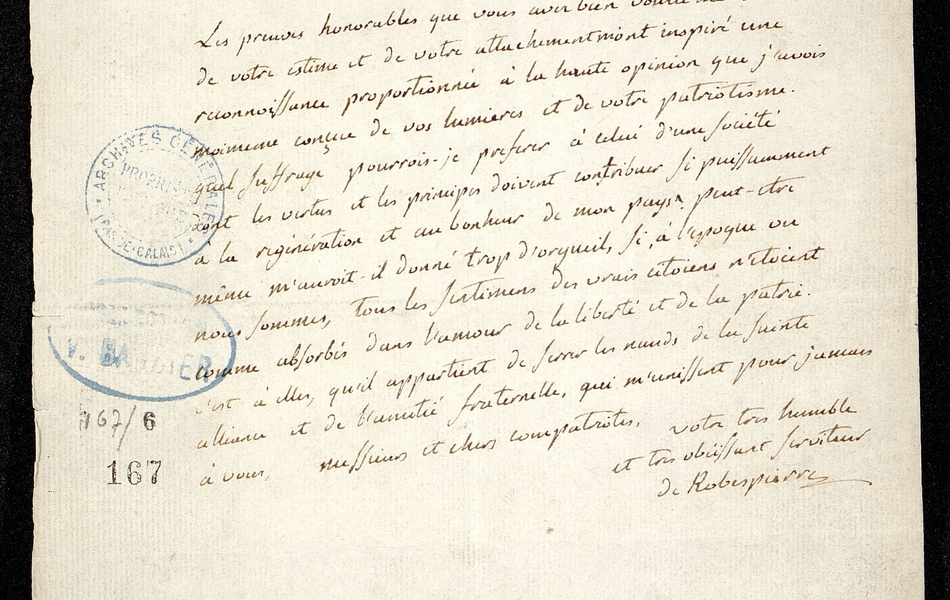 Les preuves honorables que vous avez bien voulu
de votre estime et de votre attachement m'ont inspiré une
reconnoissance proportionnée à la haute opinion que j'avois
moimeme conçue de vos lumieres et de votre patriotisme.
quel suffrage pourrois-je preferer à celui d'une société
dont les vertus et les principes doivent contribuer si puissamment
à la régénération et au bonheur de mon pays? peut-etre
même m'auroit-il donné trop d'orgueil, si, à l'époque ou
nous sommes, tous les sentimens des vrais citoiens n'étoient
comme absorbés dans l'amour de la liberté et de la patrie.
c'est à elles, qu'il appartient de serrer les nœuds de la sainte
alliance et de l'amitié fraternelle, qui m'unissent pour jamais
à vous, messieurs et chers compatriotes.
votre tres humble
et tres obéissant serviteur
de Robespierre
ARCHIVES GENERALES
PAS-DE-CALAIS
V. BARBIER
167/6
167